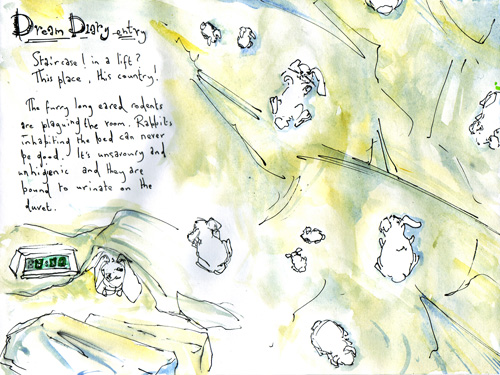 Dream Diary entry
Staircase! in a lift?
This place, this country!
The furry long eared rodents
are plaguing the room. Rabbits
inhabiting the bed can never
be good. It's unsavoury and
unhigienic and they are
bound to urinate on the
duvet.